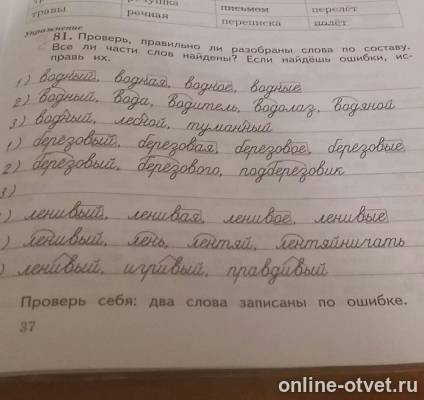 травы речная письмом перелёт
переписка полёт
Упражнение
81. Проверь, правильно ли разобраны слова по составу.
Все ли части слов найдены? Если найдёшь ошибки, ис-
правь их.
1) водный, водная, водное, водные
2) водный, вода, водитель, водолаз, водяной
3) водный, лесной, туманный
1) берёзовый, берёзовая, берёзовое, берёзовые
2) берёзовый, берёзового, подберёзовик
3)
) ленивый, ленивая, ленивое, ленивые
) ленивый, лень, лентяй, лентяйничать
) ленивый, игривый, правдивый
Проверь себя: два слова записаны по ошибке.
37
online-otvet.ru